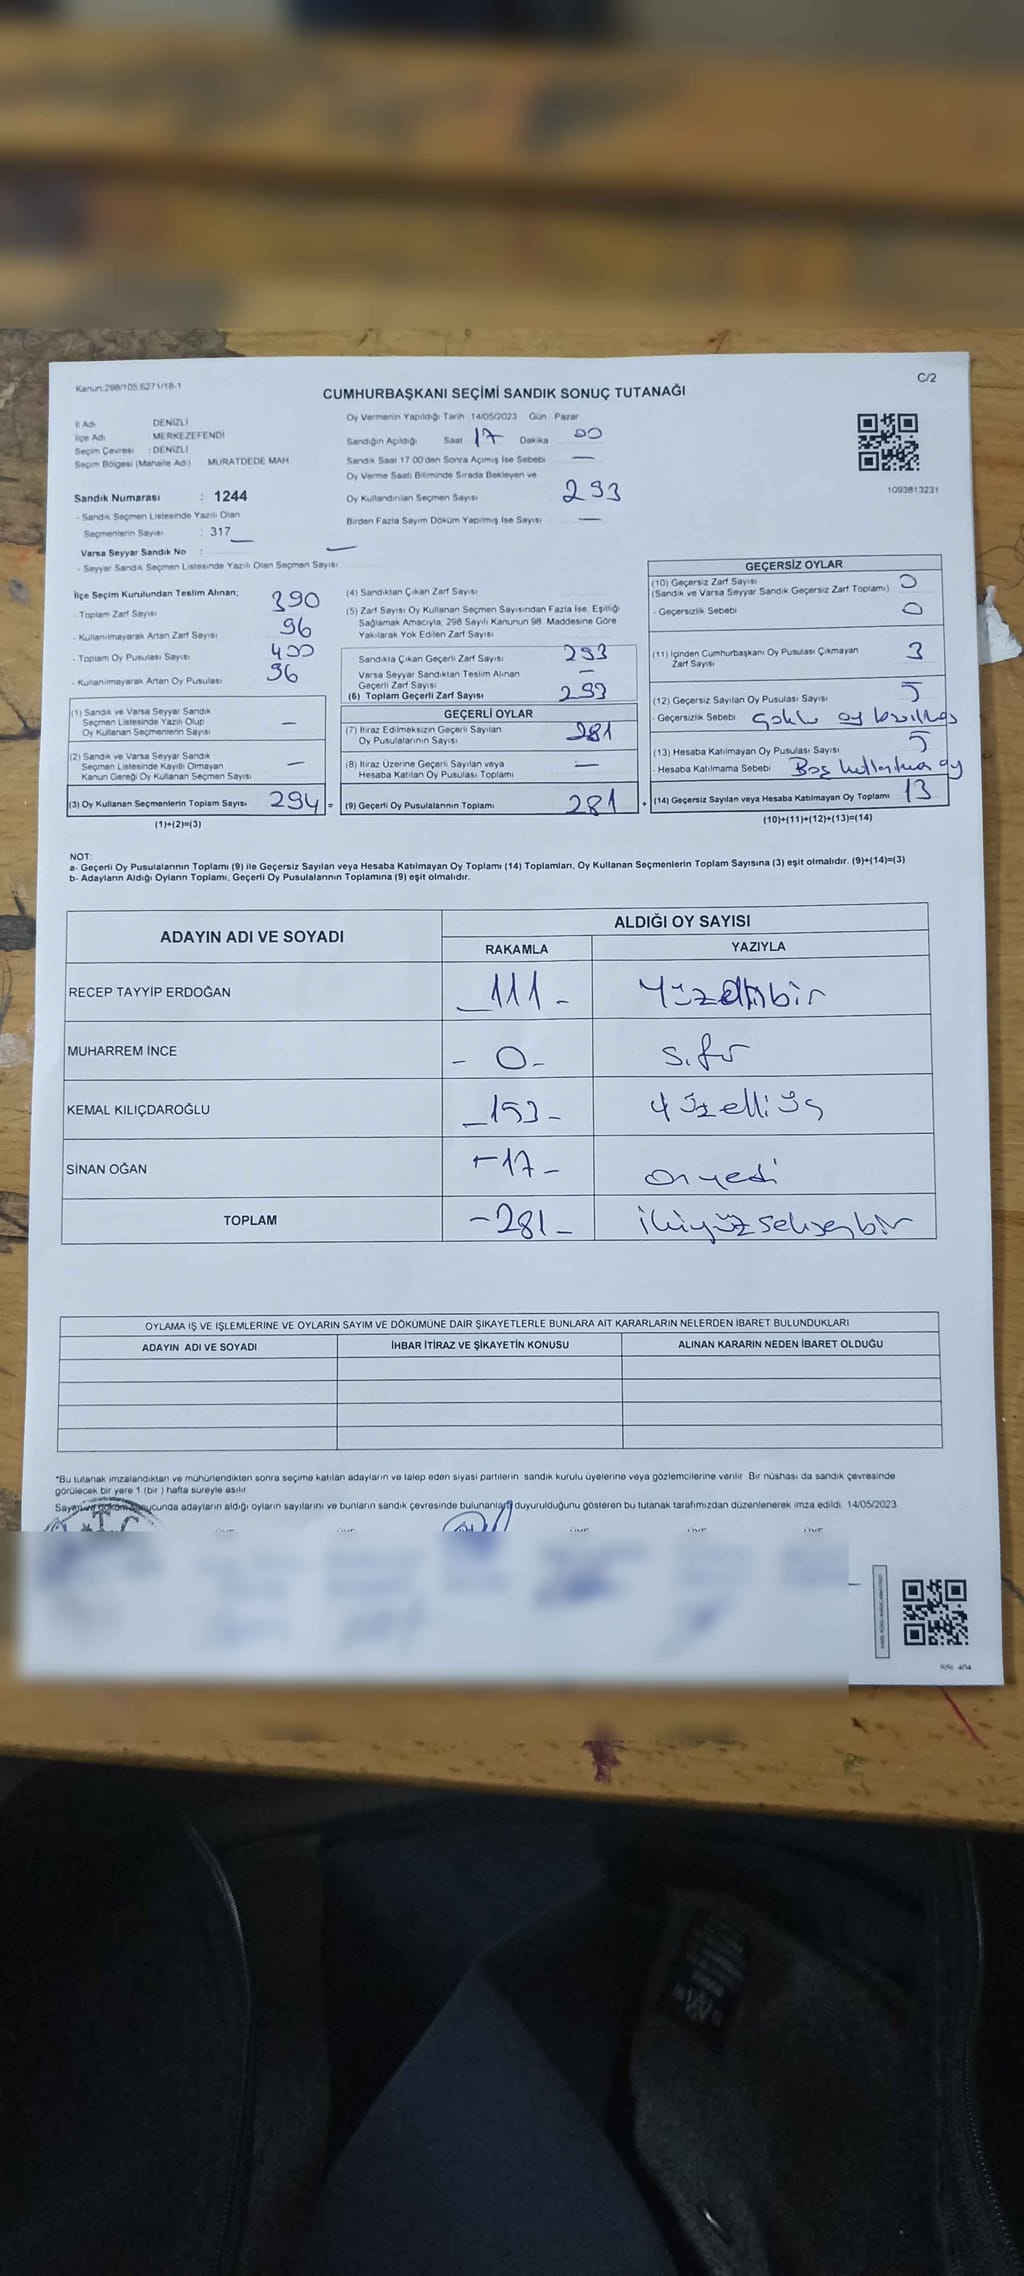 Kanun:298/105,6271/18-1
C/2
CUMHURBAŞKANI SEÇİMİ SANDIK SONUÇ TUTANAĞI
İl Adı DENİZLİ
İlçe Adı MERKEZEFENDİ
Seçim Çevresi : DENİZLİ
Seçim Bölgesi (Mahalle Adı) MURATDEDE MAH
Oy Vermenin Yapıldığı Tarih :14/05/2023 Gün Pazar
Sandığın Açıldığı Saat 17 Dakika 00
Sandık Saat 17 00'den Sonra Açılmış İse Sebebi —
Oy Verme Saati Bitiminde Sırada Bekleyen ve
Oy Kullandırılan Seçmen Sayısı 293
Birden Fazla Sayım Döküm Yapılmış İse Sayısı —
1093813231
Sandık Numarası : 1244
- Sandık Seçmen Listesinde Yazılı Olan
Seçmenlerin Sayısı : 317
Varsa Seyyar Sandık No : —
- Seyyar Sandık Seçmen Listesinde Yazılı Olan Seçmen Sayısı:
İlçe Seçim Kurulundan Teslim Alınan;
- Toplam Zarf Sayısı 390
- Kullanılmayarak Artan Zarf Sayısı 96
- Toplam Oy Pusulası Sayısı 400
- Kullanılmayarak Artan Oy Pusulası 96
(1) Sandık ve Varsa Seyyar Sandık
Seçmen Listesinde Yazılı Olup
Oy Kullanan Seçmenlerin Sayısı —
(2) Sandık ve Varsa Seyyar Sandık
Seçmen Listesinde Kayıtlı Olmayan
Kanun Gereği Oy Kullanan Seçmen Sayısı —
(3) Oy Kullanan Seçmenlerin Toplam Sayısı 294 =
(1)+(2)=(3)
(4) Sandıktan Çıkan Zarf Sayısı
(5) Zarf Sayısı Oy Kullanan Seçmen Sayısından Fazla İse, Eşitliği
Sağlamak Amacıyla; 298 Sayılı Kanunun 98. Maddesine Göre
Yakılarak Yok Edilen Zarf Sayısı
Sandıkta Çıkan Geçerli Zarf Sayısı 293
Varsa Seyyar Sandıktan Teslim Alınan
Geçerli Zarf Sayısı —
(6) Toplam Geçerli Zarf Sayısı 293
GEÇERLİ OYLAR
(7) İtiraz Edilmeksizin Geçerli Sayılan
Oy Pusulalarının Sayısı 281
(8) İtiraz Üzerine Geçerli Sayılan veya
Hesaba Katılan Oy Pusulası Toplamı —
(9) Geçerli Oy Pusulalarının Toplamı 281 +
GEÇERSİZ OYLAR
(10) Geçersiz Zarf Sayısı
(Sandık ve Varsa Seyyar Sandık Geçersiz Zarf Toplamı) 0
- Geçersizlik Sebebi 0
(11) İçinden Cumhurbaşkanı Oy Pusulası Çıkmayan
Zarf Sayısı 3
(12) Geçersiz Sayılan Oy Pusulası Sayısı 5
- Geçersizlik Sebebi Çoklu oy
(13) Hesaba Katılmayan Oy Pusulası Sayısı 5
- Hesaba Katılmama Sebebi Boş oy
(14) Geçersiz Sayılan veya Hesaba Katılmayan Oy Toplamı 13
(10)+(11)+(12)+(13)=(14)
NOT:
a- Geçerli Oy Pusulalarının Toplamı (9) ile Geçersiz Sayılan veya Hesaba Katılmayan Oy Toplamı (14) Toplamları, Oy Kullanan Seçmenlerin Toplam Sayısına (3) eşit olmalıdır. (9)+(14)=(3)
b- Adayların Aldığı Oyların Toplamı, Geçerli Oy Pusulalarının Toplamına (9) eşit olmalıdır.
ADAYIN ADI VE SOYADI ALDIĞI OY SAYISI
RAKAMLA YAZIYLA
RECEP TAYYİP ERDOĞAN _111- Yüzonbir
MUHARREM İNCE - 0 - Sıfır
KEMAL KILIÇDAROĞLU _153- Yüzelli üç
SİNAN OĞAN -17- Onyedi
TOPLAM -281- ikiyüz seksenbir
OYLAMA İŞ VE İŞLEMLERİNE VE OYLARIN SAYIM VE DÖKÜMÜNE DAİR ŞİKAYETLERLE BUNLARA AİT KARARLARIN NELERDEN İBARET BULUNDUKLARI
ADAYIN ADI VE SOYADI İHBAR İTİRAZ VE ŞİKAYETİN KONUSU ALINAN KARARIN NEDEN İBARET OLDUĞU
*Bu tutanak imzalandıktan ve mühürlendikten sonra seçime katılan adayların ve talep eden siyasi partilerin sandık kurulu üyelerine veya gözlemcilerine verilir. Bir nüshası da sandık çevresinde
görülecek bir yere 1 (bir ) hafta süreyle asılır.
Sayım ve döküm sonucunda adayların aldığı oyların sayılarını ve bunların sandık çevresinde bulunanlara duyurulduğunu gösteren bu tutanak tarafımızdan düzenlenerek imza edildi. 14/05/2023
T.C.